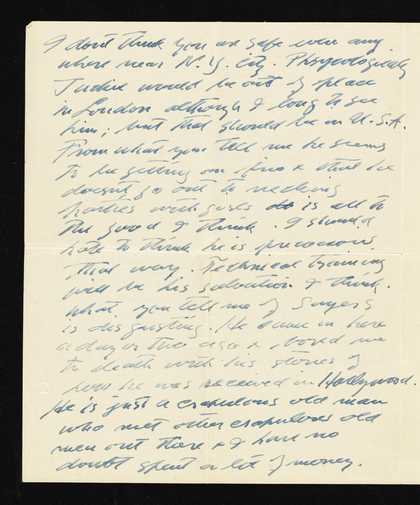 I don't think you are safe even any
where near N. Y. City. Physycologically
Judie would be out of place
in London although I long to see
him; but that should be in U.S.A.
From what you tell me he seems
to be getting on fine & that he
doesn't go out to necking
parties with girls is all to
the good I think. I should
hate to think he is precocious
that way. Technical training
will be his salvation I think.
What you tell me of
is disgusting. He came in here
a day or two ago & bored me
to death with his stories of
how he was received in Hollywood.
He is just a crapulous old man
who met other crapulous old
men out there & I have no
doubt spent a lot of money.